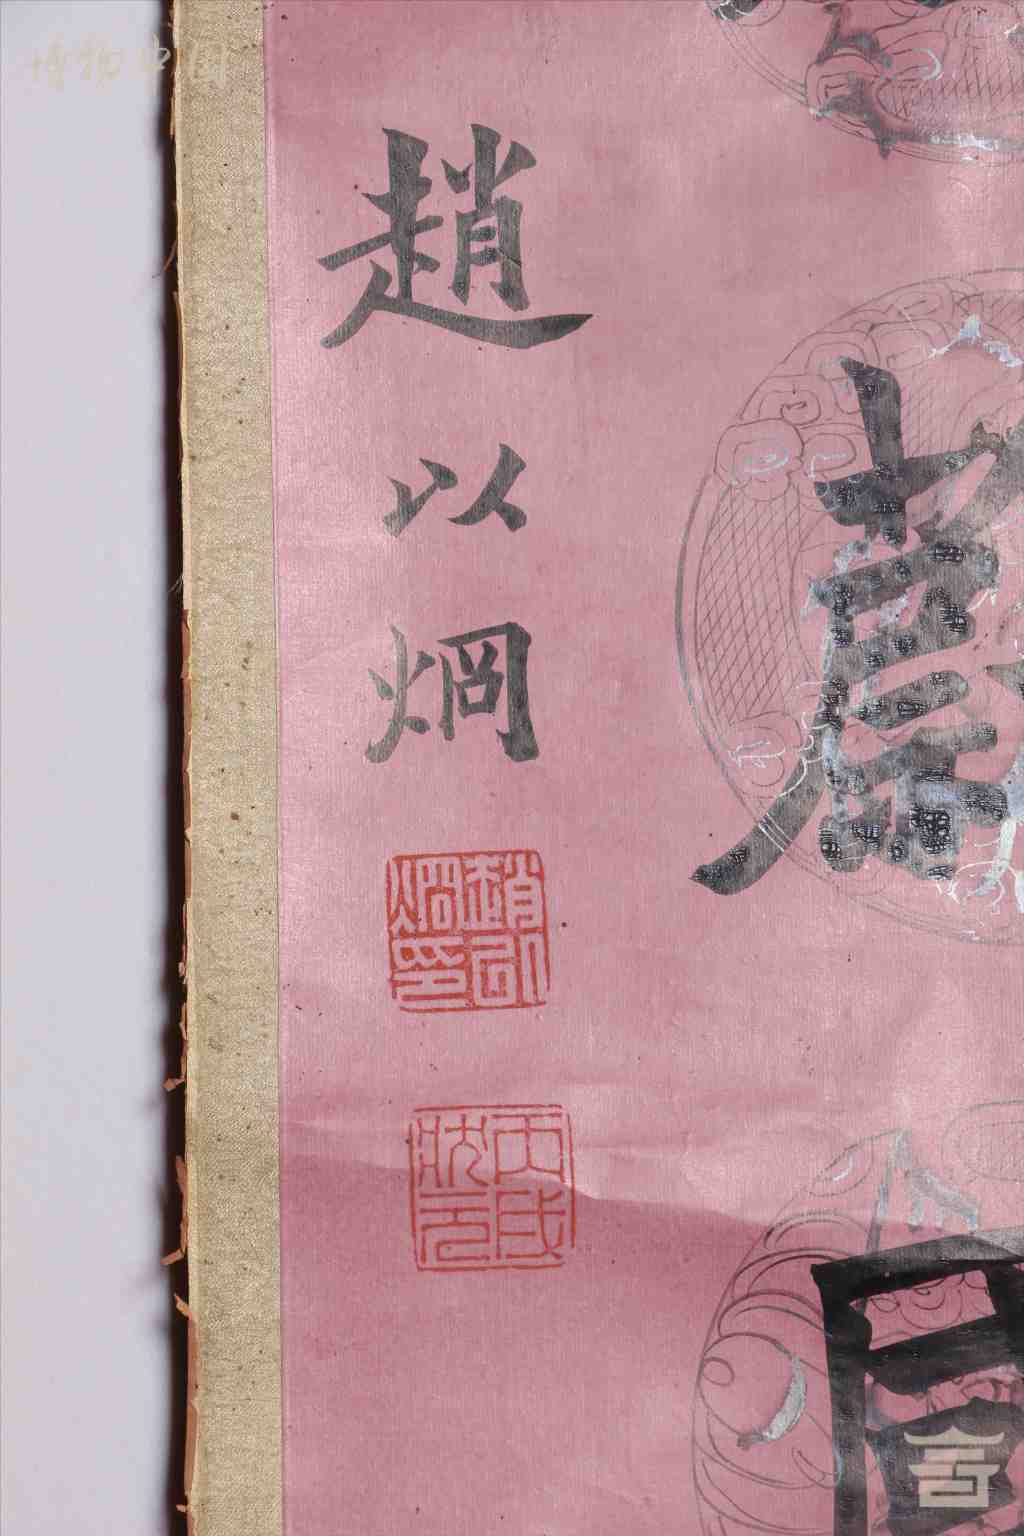 博物中国
趙以烱
趙以烱印
丙戌狀元